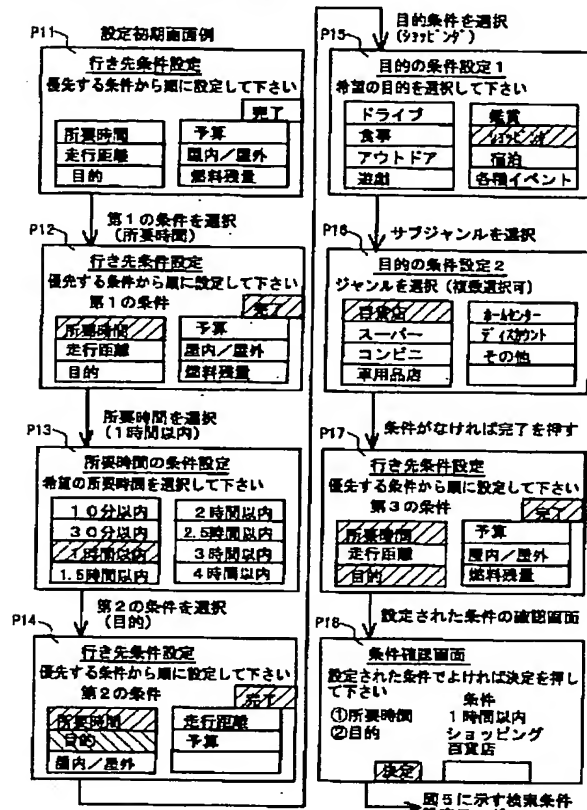 P11
設定初期画面例
行き先条件設定
優先する条件から順に設定して下さい
完了
所要時間
走行距離
目的
予算
屋内／屋外
燃料残量
第1の条件を選択
(所要時間)
P12
行き先条件設定
優先する条件から順に設定して下さい
第1の条件
完了
所要時間
走行距離
目的
予算
屋内／屋外
燃料残量
所要時間を選択
(1時間以内)
P13
所要時間の条件設定
希望の所要時間を選択して下さい
10分以内
30分以内
1時間以内
1.5時間以内
2時間以内
2.5時間以内
3時間以内
4時間以内
第2の条件を選択
(目的)
P14
行き先条件設定
優先する条件から順に設定して下さい
第2の条件
完了
所要時間
目的
屋内／屋外
走行距離
予算
目的条件を選択
(ショッピング)
P15
目的の条件設定1
希望の目的を選択して下さい
ドライブ
食事
アウトドア
遊戯
鑑賞
ショッピング
宿泊
各種イベント
サブジャンルを選択
P16
目的の条件設定2
ジャンルを選択（複数選択可）
百貨店
スーパー
コンビニ
車用品店
ホームセンター
ディスカウント
その他
条件がなければ完了を押す
P17
行き先条件設定
優先する条件から順に設定して下さい
第3の条件
完了
所要時間
走行距離
目的
予算
屋内／屋外
燃料残量
設定された条件の確認画面
P18
条件確認画面
設定された条件でよければ決定を押し
て下さい
条件
①所要時間 1時間以内
②目的 ショッピング
百貨店
決定
図5に示す検索条件